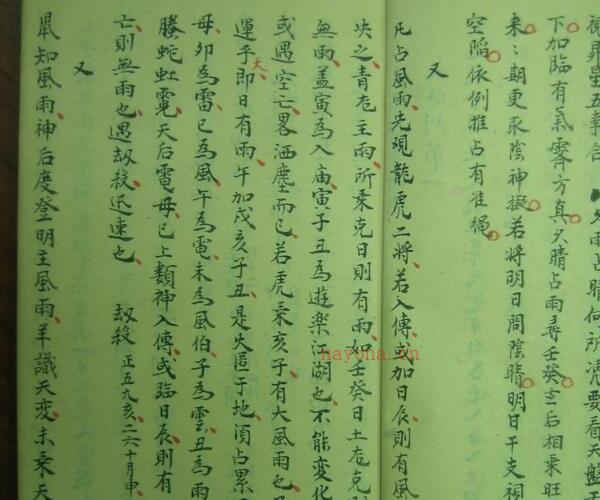 德昇星五事吉　久雨占晴何所憑要看天盤
下加臨有氣霽方真久晴占雨尋壬癸玄后相乘旺
来：期更取陰神擬若將明日問陰晴明日干支祠
空陷依例推占有准繩
又
凡占風雨先观龍虎二將若入傳或加日辰則有風
块之青龙主雨所乘克日則有雨如壬癸日土龙克則
無雨盖寅為入庙寅子丑為遊楽江湖也不能变化
或遇空亡畧洒塵而已若虎乘亥子有大風雨也
運乎即日有雨午加戌亥子丑是火匿于地須占累
天
母卯為雷巳為風午為電未為風伯子為雲丑為雨
螣蛇虹霓天后電母已上類神入傳或臨日辰則有
亡則無雨也遇劫殺迅速也　劫殺正五九亥二六十月申
又
鼠知風雨神后度登明主風雨羊識天变未乘天
nayona.cn